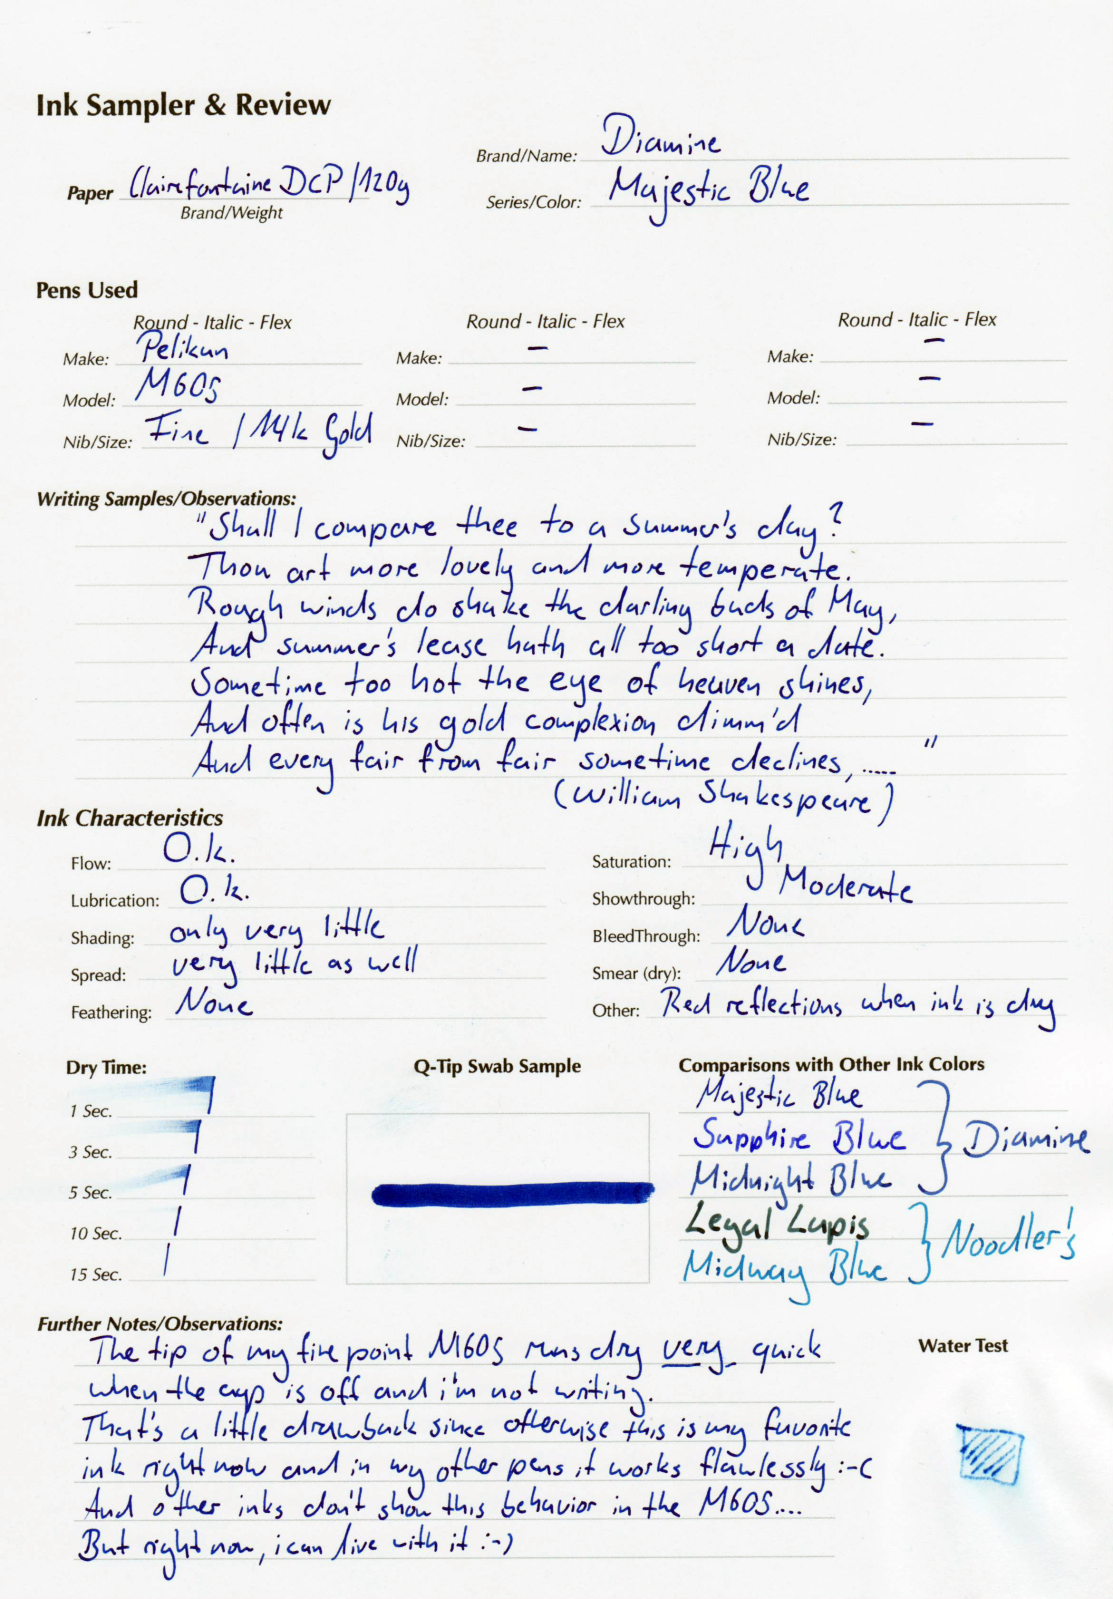 Ink Sampler & Review
Brand/Name: Diamine
Paper Clairefontaine DCP/120g
Brand/Weight
Series/Color: Majestic Blue
Pens Used
Round - Italic - Flex Round - Italic - Flex Round - Italic - Flex
Make: Pelikan Make: — Make: —
Model: M605 Model: — Model: —
Nib/Size: Fine / 14k Gold Nib/Size: — Nib/Size: —
Writing Samples/Observations:
"Shall I compare thee to a summer's day?
Thou art more lovely and more temperate.
Rough winds do shake the darling buds of May,
And summer's lease hath all too short a date.
Sometime too hot the eye of heaven shines,
And often is his gold complexion dimm'd
And every fair from fair sometime declines, ..... "
(William Shakespeare)
Ink Characteristics
Flow: O.k. Saturation: High
Lubrication: O.k. Showthrough: Moderate
Shading: only very little BleedThrough: None
Spread: very little as well Smear (dry): None
Feathering: None Other: Red reflections when ink is dry
Dry Time: Q-Tip Swab Sample Comparisons with Other Ink Colors
1 Sec. Majestic Blue
3 Sec. Sapphire Blue Diamine
5 Sec. Midnight Blue
10 Sec. Legal Lapis Noodler's
15 Sec. Midway Blue
Further Notes/Observations:
Water Test
The tip of my fine point M605 runs dry very quick
when the cap is off and i'm not writing.
That's a little drawback since otherwise this is my favorite
ink right now and in my other pens it works flawlessly :-(
And other inks don't show this behavior in the M605....
But right now, i can live with it :-)